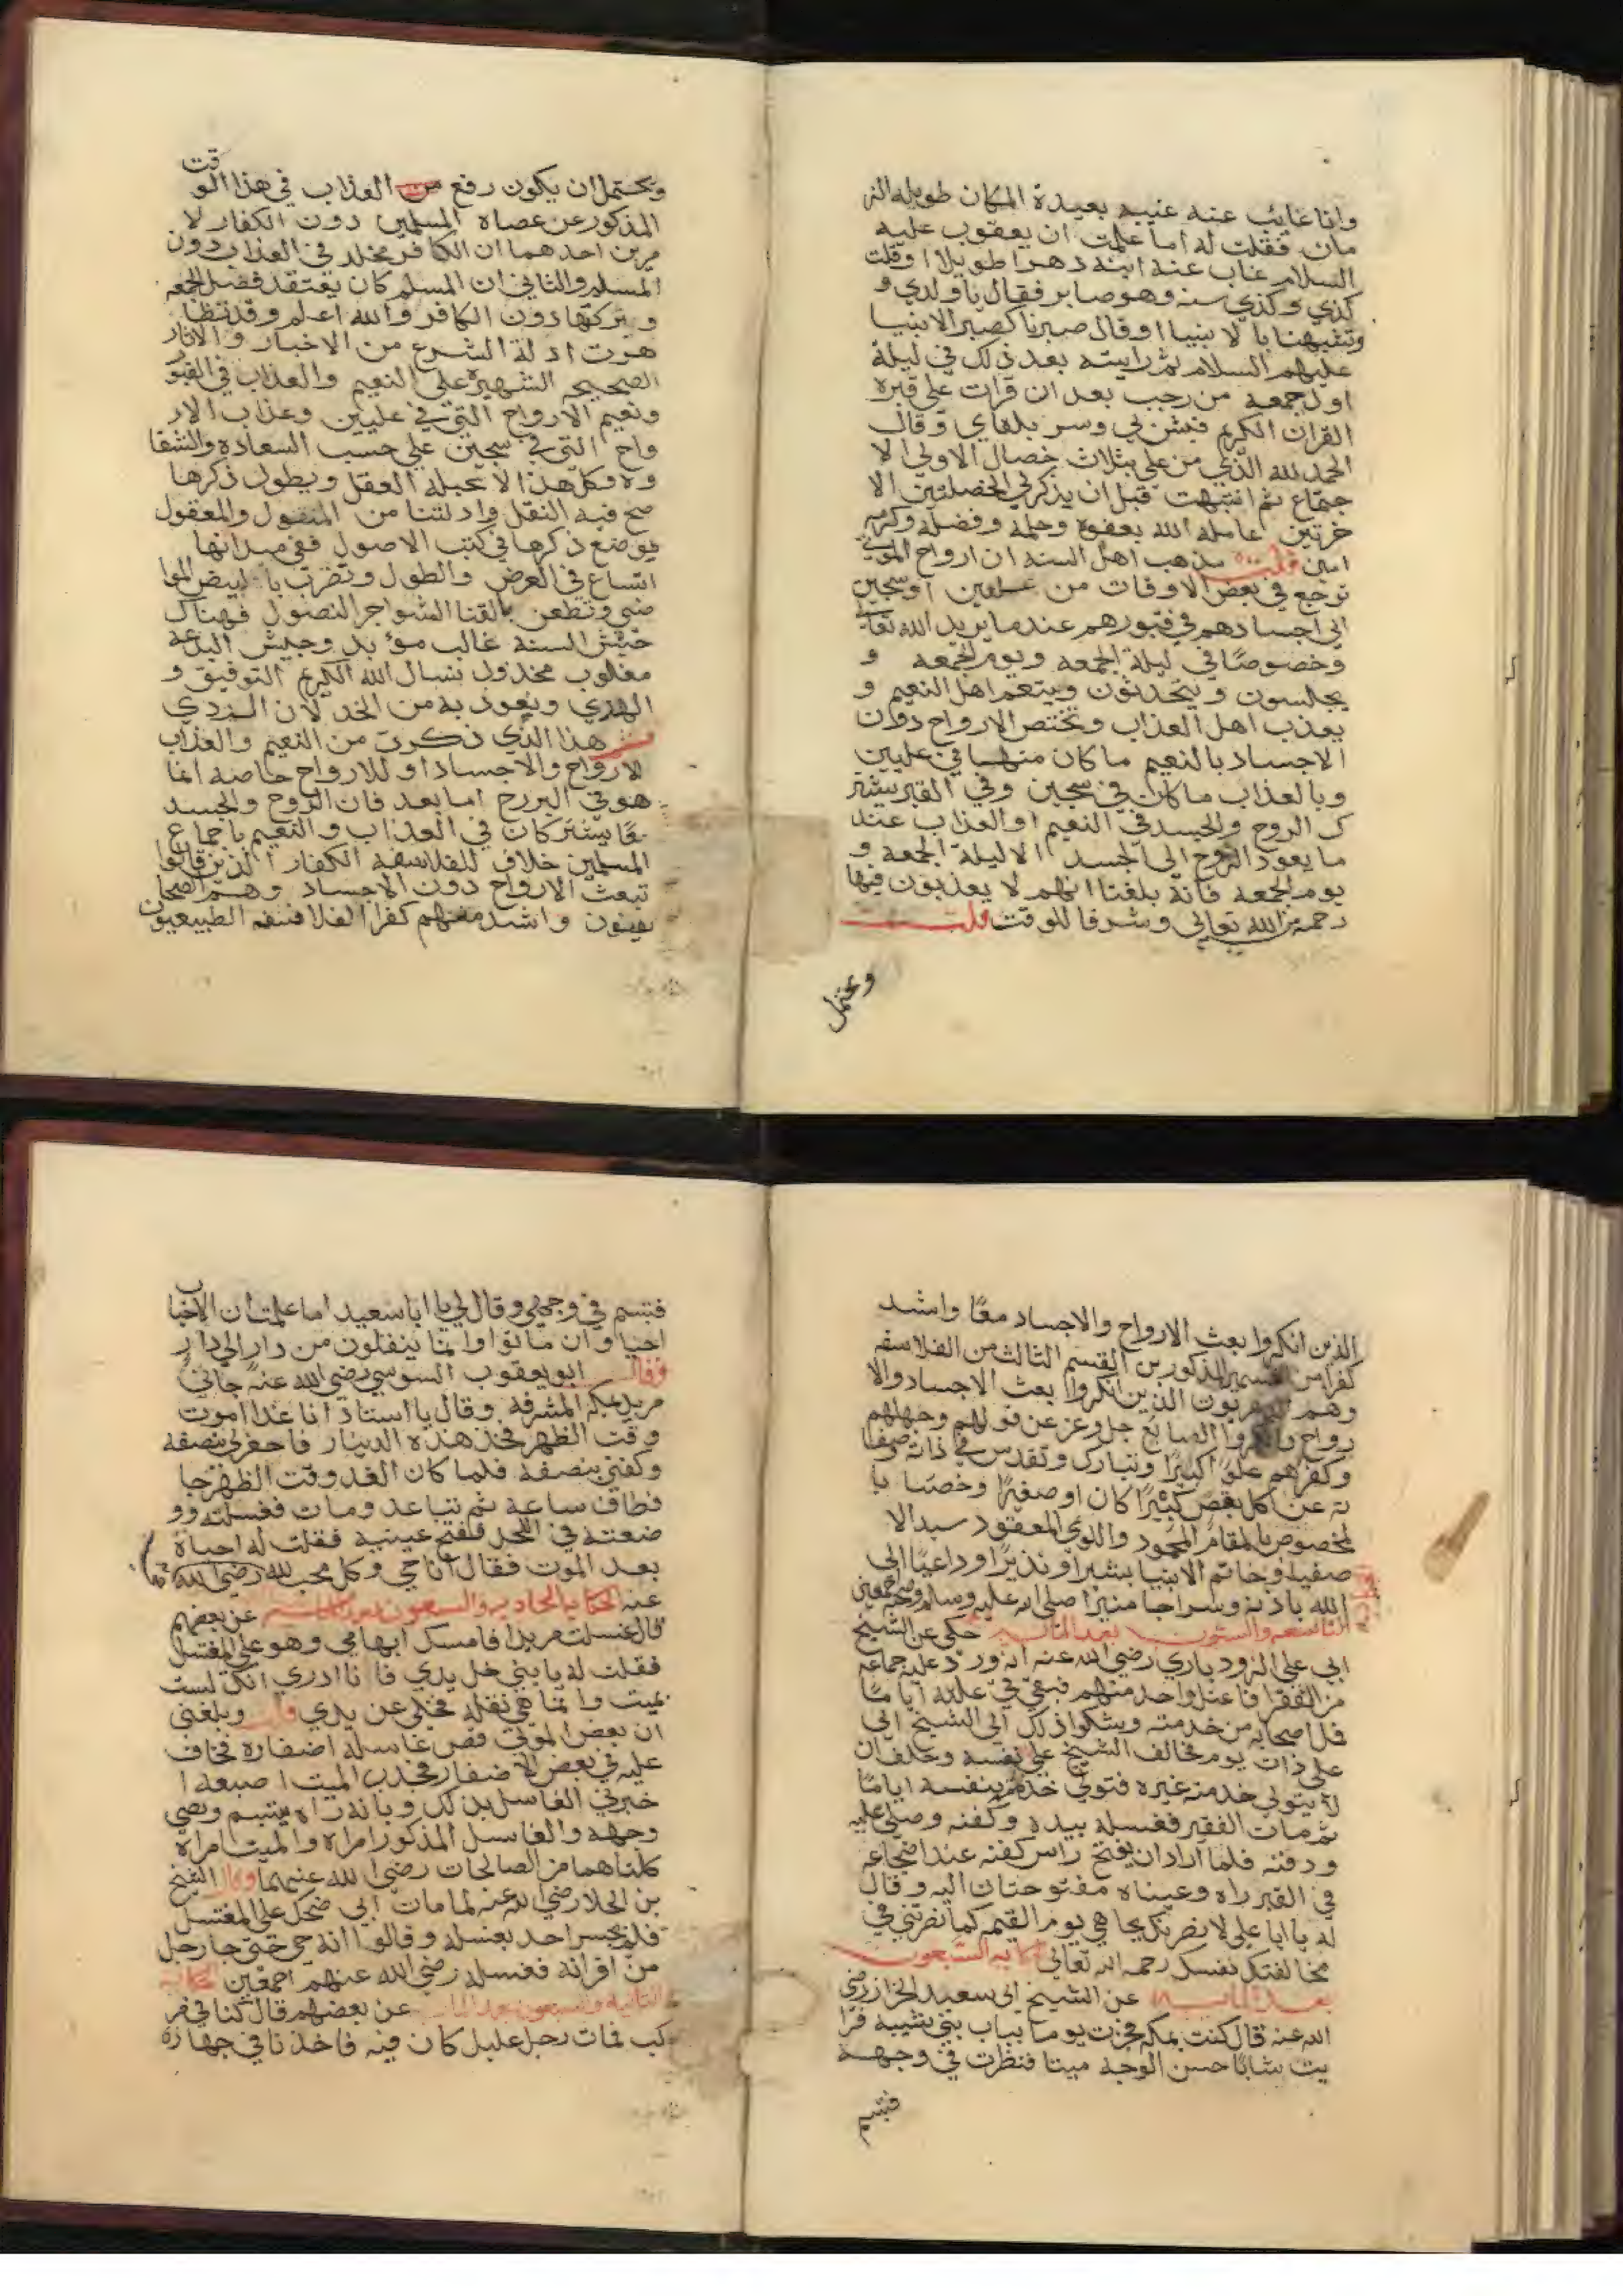 وانا غايب عنه غيبه بعيدة المكان طويله الز
مان فقلت له اما علمت ان يعقوب عليه
السلام غاب عنه ابنه دهرا طويلا او قلت
كذي وكذي سنه وهو صابر فقال يا ولدي و
وتشبهنا بالانبيا او قال صبرنا كصبر الانبيا
عليهم السلام ثم رايته بعد ذلك في ليلة
اول جمعه من رجب بعد ان قرات على قبره
القران الكريم فبش لي وسر بلقاي وقال
الحمد لله الذي من علي بثلاث خصال الاولي الا
جتماع ثم انتبهت قبل ان يذكر لي الخصلتين الا
خرتين عامله الله بعفوه وحلمه وفضله وكرمه
امين قلت مذهب اهل السنه ان ارواح الموتي
ترجع في بعض الاوقات من عليين او سجين
الي اجسادهم في قبورهم عند ما يريد الله تعالي
وخصوصا في ليلة الجمعه ويوم الجمعه و
يجلسون ويتحدثون ويتنعم اهل النعيم و
يعذب اهل العذاب وتختص الارواح دون
الاجساد بالنعيم ما كان منها في عليين
وبالعذاب ما كان في سجين وفي القبر يشتر
ك الروح والجسد في النعيم او العذاب عند
ما يعود الروح الى الجسد الا ليلة الجمعه و
يوم الجمعه فانه بلغنا انهم لا يعذبون فيها
رحمة من الله تعالى وشرفا للوقت قلت
ويحتمل
ويحتمل ان يكون رفع العذاب في هذا الوقت
المذكور عن عصاه المسلمين دون الكفار لا
مرين احدهما ان الكافر مخلد في العذاب دون
المسلم والثاني ان المسلم كان يعتقد فضل الجمعه
وبتركتها دون الكافر والله اعلم وقد تظا
هرت ادلة الشرع من الاخبار والاثار
الصحيحه الشهيرة على النعيم والعذاب في القبو
ونعيم الارواح التي في عليين وعذاب الار
واح التي في سجين على حسب السعاده والشقا
وه وكل هذا لا يحيله العقل ويطول ذكرها
صح فيه النقل وادلتنا من المنقول والمعقول
يوضع ذكرها في كتب الاصول ففي ميدانها
اتساع في العرض والطول وتضرب بالبيض الموا
ضي وتطعن بالقنا الشواجر النصول فهناك
جيش السنه غالب مؤبد وجيش البدعه
مغلوب مخذول نسال الله الكريم التوفيق و
الهدي ونعوذ به من الخذلان الردي
هذا الذي ذكرت من النعيم والعذاب
للارواح والاجساد او للارواح خاصه انما
هو في البرزخ اما بعد فان الروح والجسد
معا يشتركان في العذاب والنعيم باجماع
المسلمين خلاف للفلاسفه الكفار الذين قالوا
تبعث الارواح دون الاجساد وهم
يقينون واشد منهم كفرا الفلاسفه الطبيعيون
الذين انكروا بعث الارواح والاجساد معا واشد
كفرا من القسمين المذكورين القسم الثالث من الفلاسفه
وهم الدهريون الذين انكروا بعث الاجساد والا
رواح وانكروا الصانع جل وعز عن قولهم وجهلهم
وكفرهم علوا كبيرا وتبارك وتقدس في ذاته وصفا
ته عن كل نقص كبيرا كان او صغيرا وخصنا با
لمخصوص بالمقام المحمود واللوي المعقود سيد الا
صفيا وخاتم الانبيا بشيرا ونذيرا وداعيا الى
الله باذنه وسراجا منيرا صلى الله عليه وسلم
التاسعه والستون بعد المايه حكي عن الشيخ
ابي علي الرودباري رضي الله عنه انه ورد عليه جماعه
من الفقرا فاعتل واحد منهم فبقي في علته اياما
فمل اصحابه من خدمته وشكوا ذلك الى الشيخ ابي
على ذات يوم فخالف الشيخ على نفسه وحلف ان
لا يتولى خدمته غيره فتولى خدمته بنفسه اياما
ثم مات الفقير فغسله بيده وكفنه وصلى عليه
ودفنه فلما اراد ان يفتح راس كفنه عند اضجاعه
في القبر راه وعيناه مفتوحتان اليه وقال
له يا ابا علي لانصرنك بجاهي يوم القيمه كما نصرتني في
مخالفتك نفسك رحمه الله تعالى الحكايه السبعون
بعد المايه عن الشيخ ابي سعيد الخراز رضي
الله عنه قال كنت بمكه فجزت يوما بباب بني شيبه فرا
يت شابا حسن الوجه ميتا فنظرت في وجهه
فتبسم
فتبسم في وجهي وقال لي يا ابا سعيد اما علمت ان الاحباب
احيا وان ماتوا وانما ينقلون من دار الي دار
وقال ابو يعقوب السوسي رضي الله عنه جاني
مريد بمكه المشرفه وقال يا استاذ انا غدا اموت
وقت الظهر فخذ هذه الدينار فاحفر لي بنصفه
وكفني بنصفه فلما كان الغد وقت الظهر جا
فطاف ساعة ثم تباعد ومات فغسلته وو
ضعته في اللحد ففتح عينيه فقلت له احياة
بعد الموت فقال انا حي وكل محب لله رضي الله
عنه الحكايه الحاديه والسبعون بعد المايه عن بعضهم
قال غسلت مريدا فامسك ابهامي وهو على المغتسل
فقلت له يا بني خل يدي فانا ادري انك لست
بميت وانما هي نقله فخلى عن يدي قلت وبلغني
ان بعض الموتي قص غاسله اضفاره فخاف
عليه في بعض الاضفار فجذب الميت اصبعه ا
خبرني الغاسل بذلك وبانه راه يتبسم ويضي
وجهه والغاسل المذكور امراه والميت امراه
كلتاهما من الصالحات رضي الله عنهما وقال الشيخ
بن الجلا رضي الله عنه لما مات ابي ضحك على المغتسل
فلم يجسر احد بغسله وقالوا انه حي حتى جا رجل
من اقرانه فغسله رضي الله عنهم اجمعين الحكايه
الثانيه والسبعون بعد المايه عن بعضهم قال كنا في مر
كب فمات رجل عليل كان فيه فاخذنا في جهازه